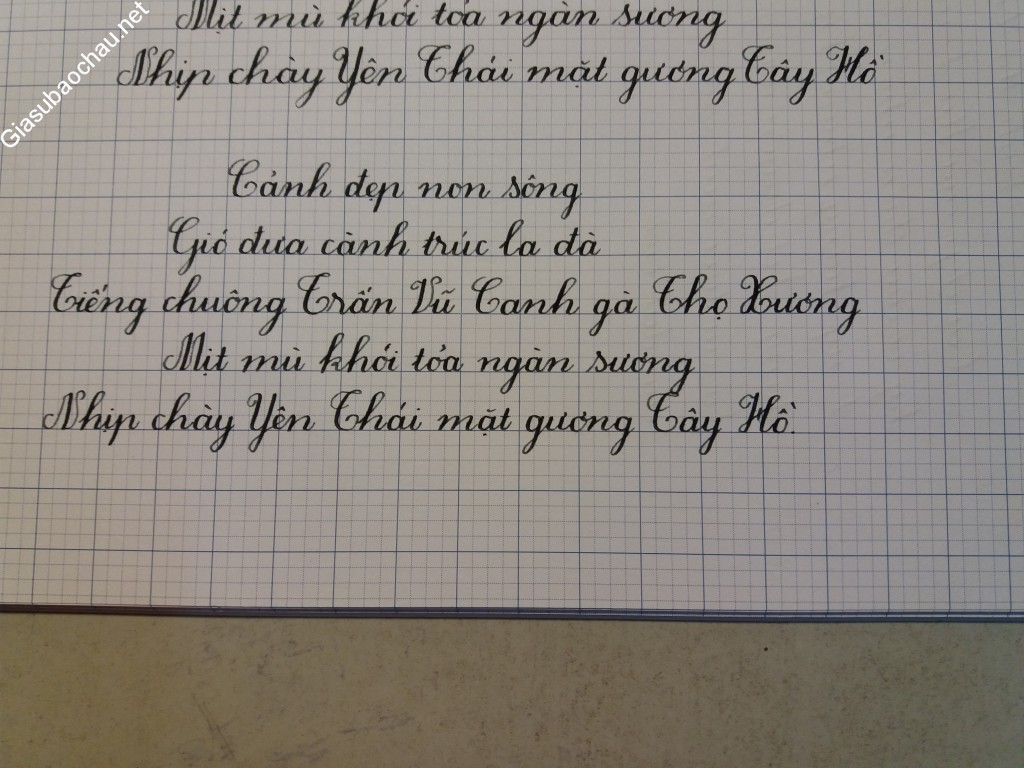 Mịt mù khói tỏa ngàn sương
Nhịp chày Yên Thái mặt gương Tây Hồ
Giasubaochau.net
Cảnh đẹp non sông
Gió đưa cành trúc la đà
Tiếng chuông Trấn Vũ Canh gà Thọ Xương
Mịt mù khói tỏa ngàn sương
Nhịp chày Yên Thái mặt gương Tây Hồ.